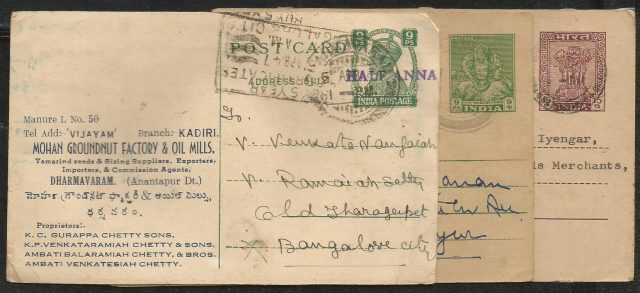 Manure L No. 50
Tel Add: 'VIJAYAM' Branch: KADIRI.
MOHAN GROUNDNUT FACTORY & OIL MILLS,
Tamarind seeds & Sizing Suppliers, Exporters,
Importers, & Commission Agents.
DHARMAVARAM. (Anantapur Dt.)
మోహన్ గ్రౌండ్‌నట్ ఫ్యాక్టరీ & ఆయిల్ మిల్సు,
ధర్మవరం.
Proprietors:-
K. C. GURAPPA CHETTY SONS.
K.P.VENKATARAMIAH CHETTY & SONS.
AMBATI BALARAMIAH CHETTY, & BROS.
AMBATI VENKATESIAH CHETTY.
POST CARD
ADDRESS ONLY
9 PS
HALF ANNA
INDIA POSTAGE
To.
V. Venkata
V. Ramaiah Setty
Old Tharagupet
Bangalore City
POSTAGE
INDIA
भारत
INDIA
Iyengar,
ls Merchants,
anan